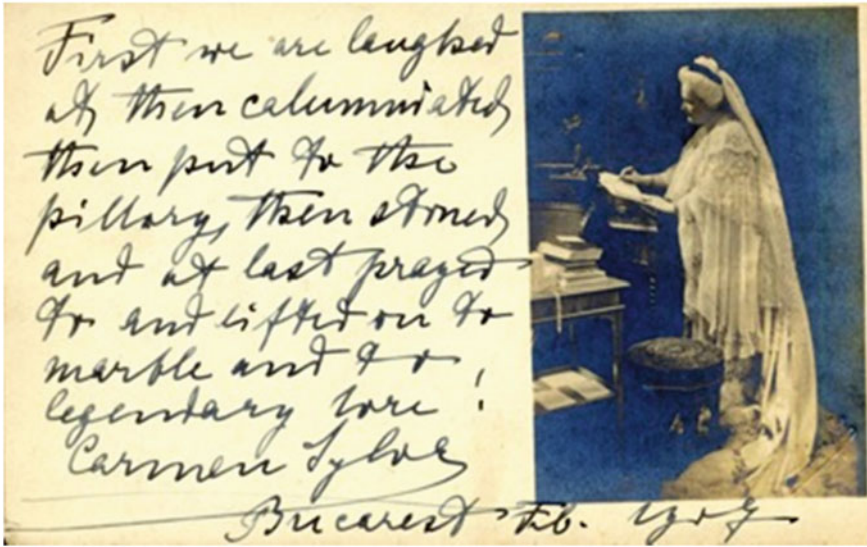 First we are laughed
at, then calumniated,
then put to the
pillory, then stoned,
and at last prayed
to and lifted on to
marble and to
legendary lore!
Carmen Sylva
Bucarest Feb. 1907